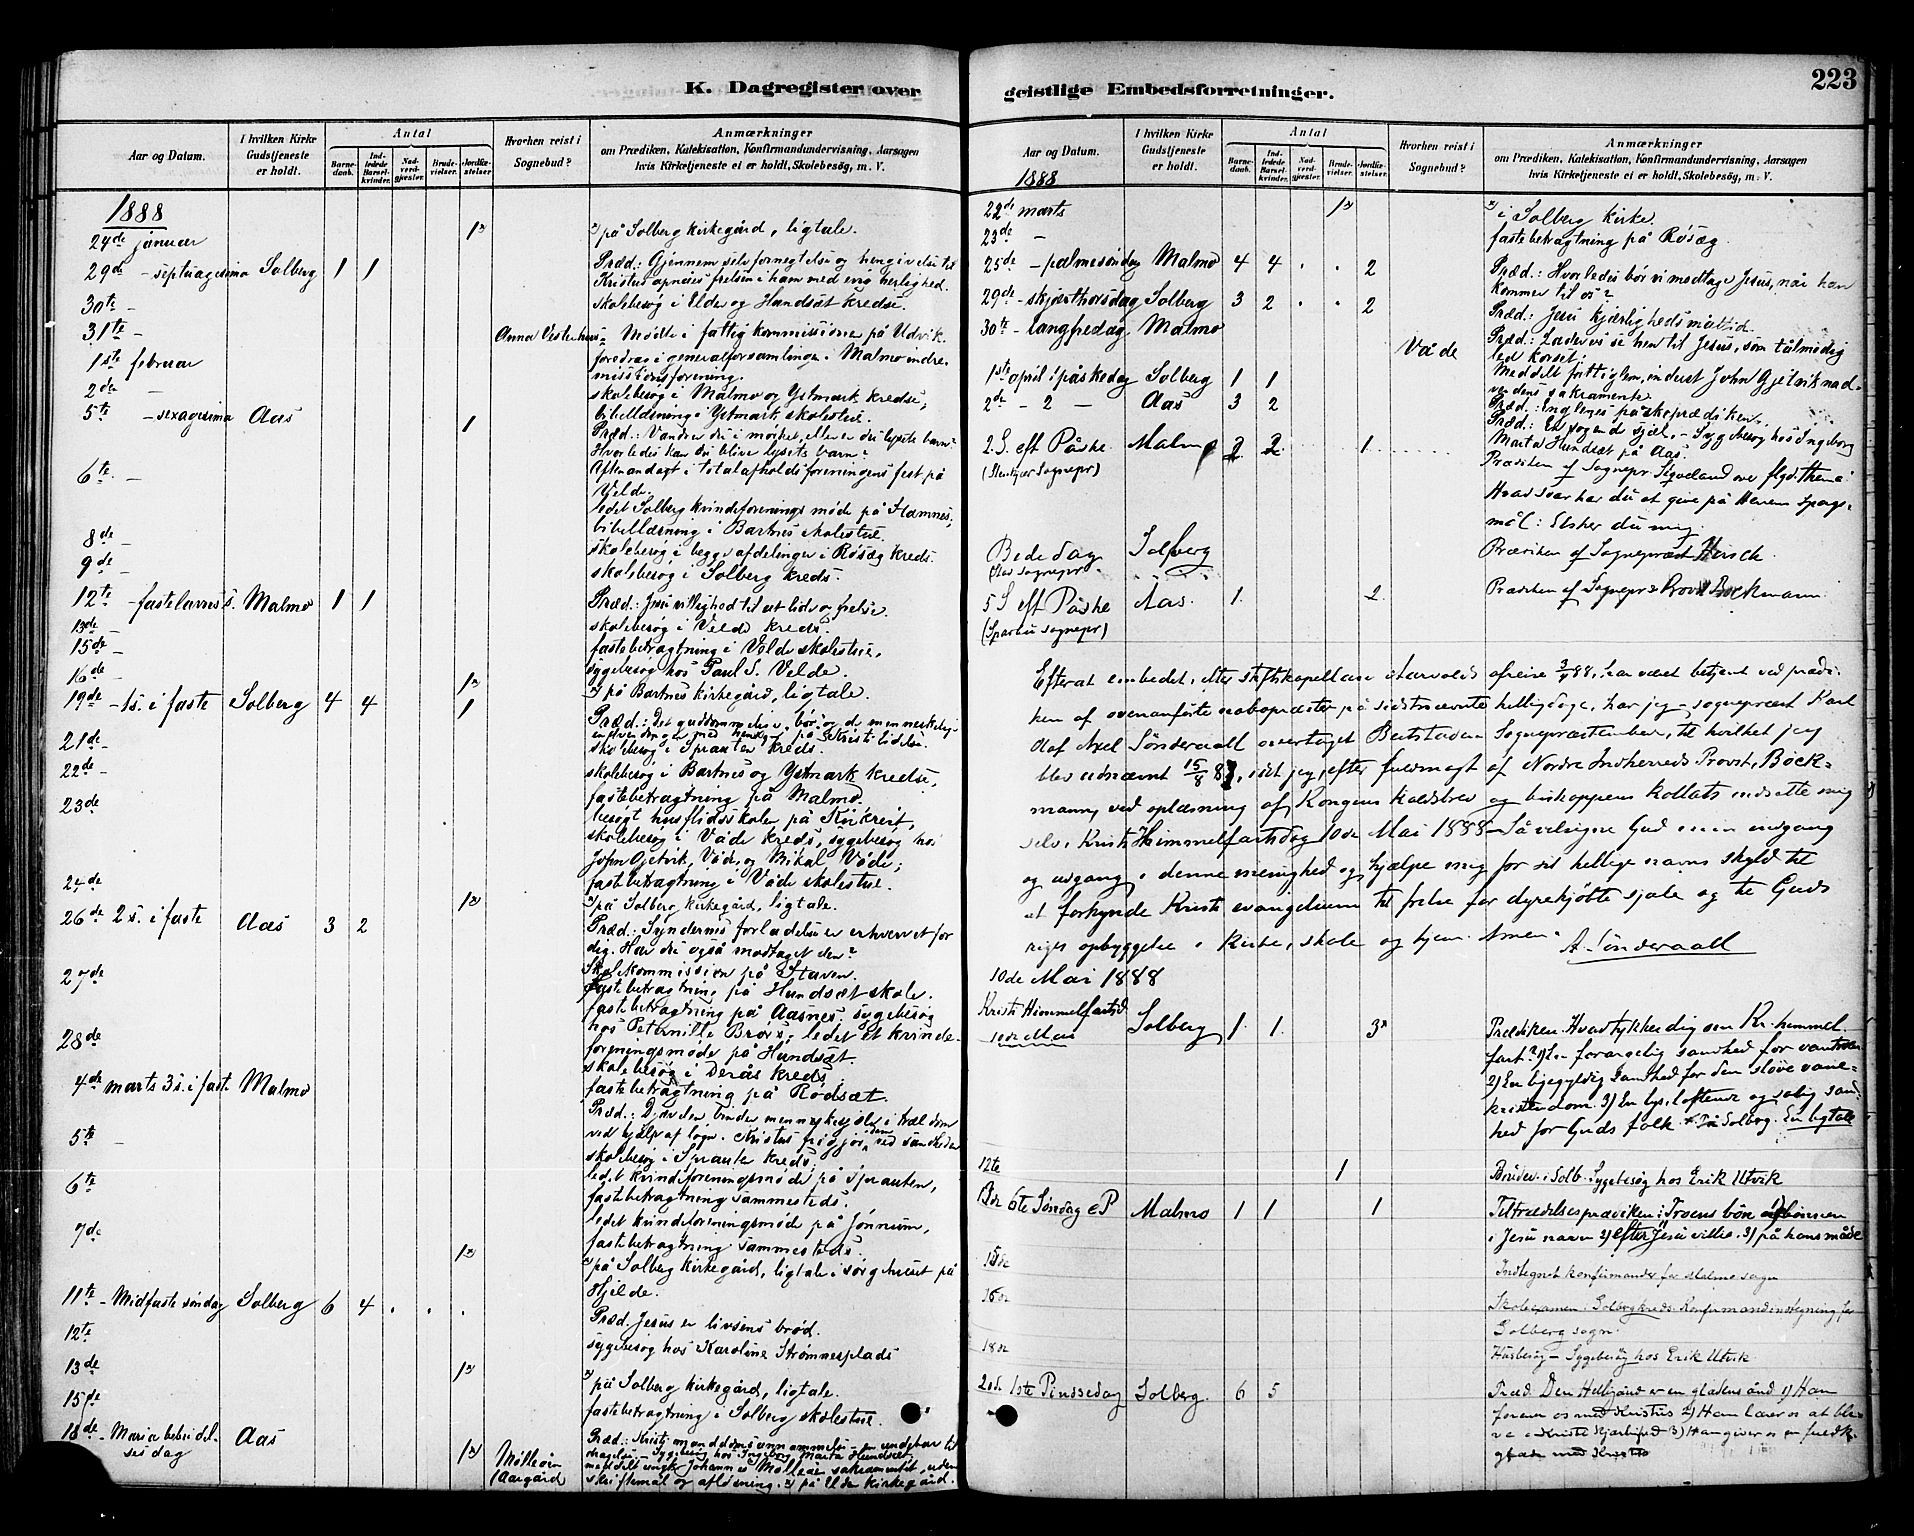 K. Dagregister over
Aar og Datum.
I hvilken Kirke Gudstjeneste er holdt.
Antal
Barnedaab.
Indledede Barselkvinder.
Nadverdgjester.
Brudevielser.
Jordfæstelser.
Hvorhen reist i Sognebud?
Anmærkninger
om Prædiken, Katekisation, Konfirmandundervisning, Aarsagen
hvis Kirketjeneste ei er holdt, Skolebesøg, m. V.
1888
24de januar 1 på Solberg kirkegård, ligtale.
29de - septuagesima Solberg 1 1 Præd.: Gjennem selvfornegtelse og hengivelse til
Kristus frelsen i ham med evig herlighed.
30te - skolebesøg i Elde og Hundsæt kredse.
31te - Anna Vesterhus Møde i fattigkommissionen på Udvik.
1ste februar foredrag i generalforsamlingen i Malmo indre-
missionsforening.
2de - skolebesøg i Malmo og Ystmark kredse,
bibellæsning i Ystmark skolestue.
5te - sexagesima Aas 1 Præd.: Vandrer du i mørket, eller er du lysets barn?
Hvorledes kan du blive lysets barn?
6te - Aftenandagt i totalafholdsforeningens fest på
Velde.
ledet Solberg kvindeforenings møde på Hamnes,
8de - bibellæsning i Bartnes skolestue.
skolebesøg i begge afdelinger i Røsæg kreds.
9de - skolebesøg i Solberg kreds.
12te - fastelavnss. Malmo 1 1 Præd.: Jesu villighed til at lide og frelse.
13de - skolebesøg i Velde kreds.
15de - fastebetragtning i Velde skolestue,
16de - sygebesøg hos Paul S. Velde.
1 på Bartnes kirkegård, ligtale.
19de - 1s. i faste Solberg 4 4 1 Præd.: Det guddommelige bør og de menneskelig
indvendinger med hensyn på Kristi lidelse.
21de - skolebesøg i Sprauten kreds.
22de - skolebesøg i Bartnes og Ystmark kredse,
fastebetragtning på Malmo.
23de besøgt husflidsskolen på Kirkreit,
skolebesøg i Våde kreds, sygebesøg hos
John Gjetvik, Våde, og Mikal Våde;
24de fastebetragtning i Våde skolestue.
1 på Solberg kirkegård, ligtale.
26de 2s. i faste Aas 3 2 Præd.: Syndernes forladelse er erhvervet for
dig. Har du også modtaget den?
27de Skolekommission på Staven.
fastebetragtning på Hundsæt skole.
fastebetragtning på Aasnes, sygebesøg
28de hos Peternille Brørs, ledet et kvinde-
foreningsmøde på Hundsæt.
skolebesøg i Derås kreds,
4de marts 3s. i faste Malmo fastebetragtning på Rødsæt.
Præd.: Djævelen binder menneskesjælen i trældom
ved hjælp af løgn. Kristus frigjør dem ved sandheden
5te - skolebesøg i Sprauten kreds.
6te ledet kvindeforeningsmøde på Sprauten,
fastebetragtning sammesteds.
7de ledet kvindeforeningsmøde på Jønnum,
fastebetragtning sammesteds.
1 på Solberg kirkegård, ligtale i sørgehuset på
Hjelde.
11te - Midfaste søndag Solberg 6 4 . . . Præd. Jesus er livsens brød.
12te sygebesøg hos Karoline Strømnesplads
13de 1 på Solberg kirkegård, ligtale.
15de fastebetragtning i Solberg skolestue.
18de - Maria bebudel-
sesdag Aas 1 Præd.: Kristi manddoms annammelse
sygebesøg hos Ingeborg Marta Hundsæt
meddelt ungk. Johannes Molleøen sakramentet, uden
skriftemål og afløsning. på Elden kirkegård.
Mølleøen
(Aargård)
geistlige Embedsforretninger.
223
Aar og Datum.
I hvilken Kirke Gudstjeneste er holdt.
Antal
Barnedaab.
Indledede Barselkvinder.
Nadverdgjester.
Brudevielser.
Jordfæstelser.
Hvorhen reist i Sognebud?
Anmærkninger
om Prædiken, Katekisation, Konfirmandundervisning, Aarsagen
hvis Kirketjeneste ei er holdt, Skolebesøg, m. V.
1888
22de marts 1 i Solberg kirke.
23de - fastebetragtning på Røsæg.
25de - palmesøndag Malmo 4 4 . . 2 Præd.: Hvorledes bør vi modtage Jesus, når han
kommer til os?
29de - skjærthorsdag Solberg 3 2 . . 2 Præd.: Jesu kjærlighedsmåltid.
30te - langfredag Malmo Præd.: Lader vi se hen til Jesus, som tålmodig
led korset.
Våde Meddelt fattiglem, inderst John Gjetvik nad-
verdens sakramente.
1ste april 1 påskedag Solberg 1 1 Præd.: Englenes påskeprædiken.
2de - 2 - Aas 3 2 Præd.: En søgende sjæl. - Sygebesøg hos Ingeborg
Marta Hundsæt på Aas.
2. S. eft Påske Malmo 2 2 1 Prædiken af Sognepr. Sigveland over flgd. Thema:
(Stenkjær Sognepr) Hvad svar har du at give på Herrens spørgs-
mål: Elsker du mig.
Bededag Solberg Prædiken af Sognepræst Hirsch.
5 S. eft Påske Aas. 1. 2. Prædiken af Sognepr & Provst Bøckmann.
(Sparbu sognepr)
Efterat embedet, efter stiftskapellan Aarvolds afreise 3/4 88, har været betjent ved prædi-
ken af ovenanførte nabopræster på sidstnævnte helligdage, har jeg - sognepræst Karl
Olaf Axel Sønderaall overtaget Beitstadens Sognepræstembede, til hvilket jeg
blev udnævnt 15/8 87, idet jeg, efter fuldmagt af Nordre Indherreds Provst, Bøck-
mann, ved oplæsning af Kongens kaldsbrev og biskoppens kollats indsatte mig
selv, Kristi Himmelfartsdag 10de Mai 1888. Så velsigne Gud min indgang
og udgang i denne menighed og hjælpe mig for sit hellige navns skyld til
at forkynde Kristi evangelium til frelse for dyrekjøbte sjæle og til Guds
riges opbyggelse i kirke, skole og hjem. Amen.
A. Sønderaall
10de Mai 1888
Kristi Himmelfartsd.
10de Mai Solberg 1. 1. 3 Prædiken. Hvad tykkes dig om Kr. himmel-
fart? 1) En forargelig sandhed for vantroen
2) En ligegyldig Sandhed for den sløve vane-
kristendom. 3) En lys, løftende og salig sand-
hed for Guds folk. På Solberg. En ligtale
12te 1 Brudev. i Solb. Sygebesøg hos Erik Utvik
13de 6te Søndag e P Malmo 1 1 1 Tiltrædelsesprædiken: Troens bøn 1) bønnen
i Jesu navn 2) efter Jesu villie. 3) på hans måde
15de Indtegnet konfirmander for Malmo sogn
16de Skoleexamen i Solberg kreds. Konfirmandindtegning for
Solberg sogn.
18de Husbesøg - Sygebesøg hos Erik Utvik
20de 1ste Pinsedag Solberg. 6 5 Præd. Den Helligånd er en glædens ånd 1) Han
forener os med Kristus 2) Han lærer os at bli-
ve i Kristi Kjærlighed 3) Han giver os en
glæde med Kristus